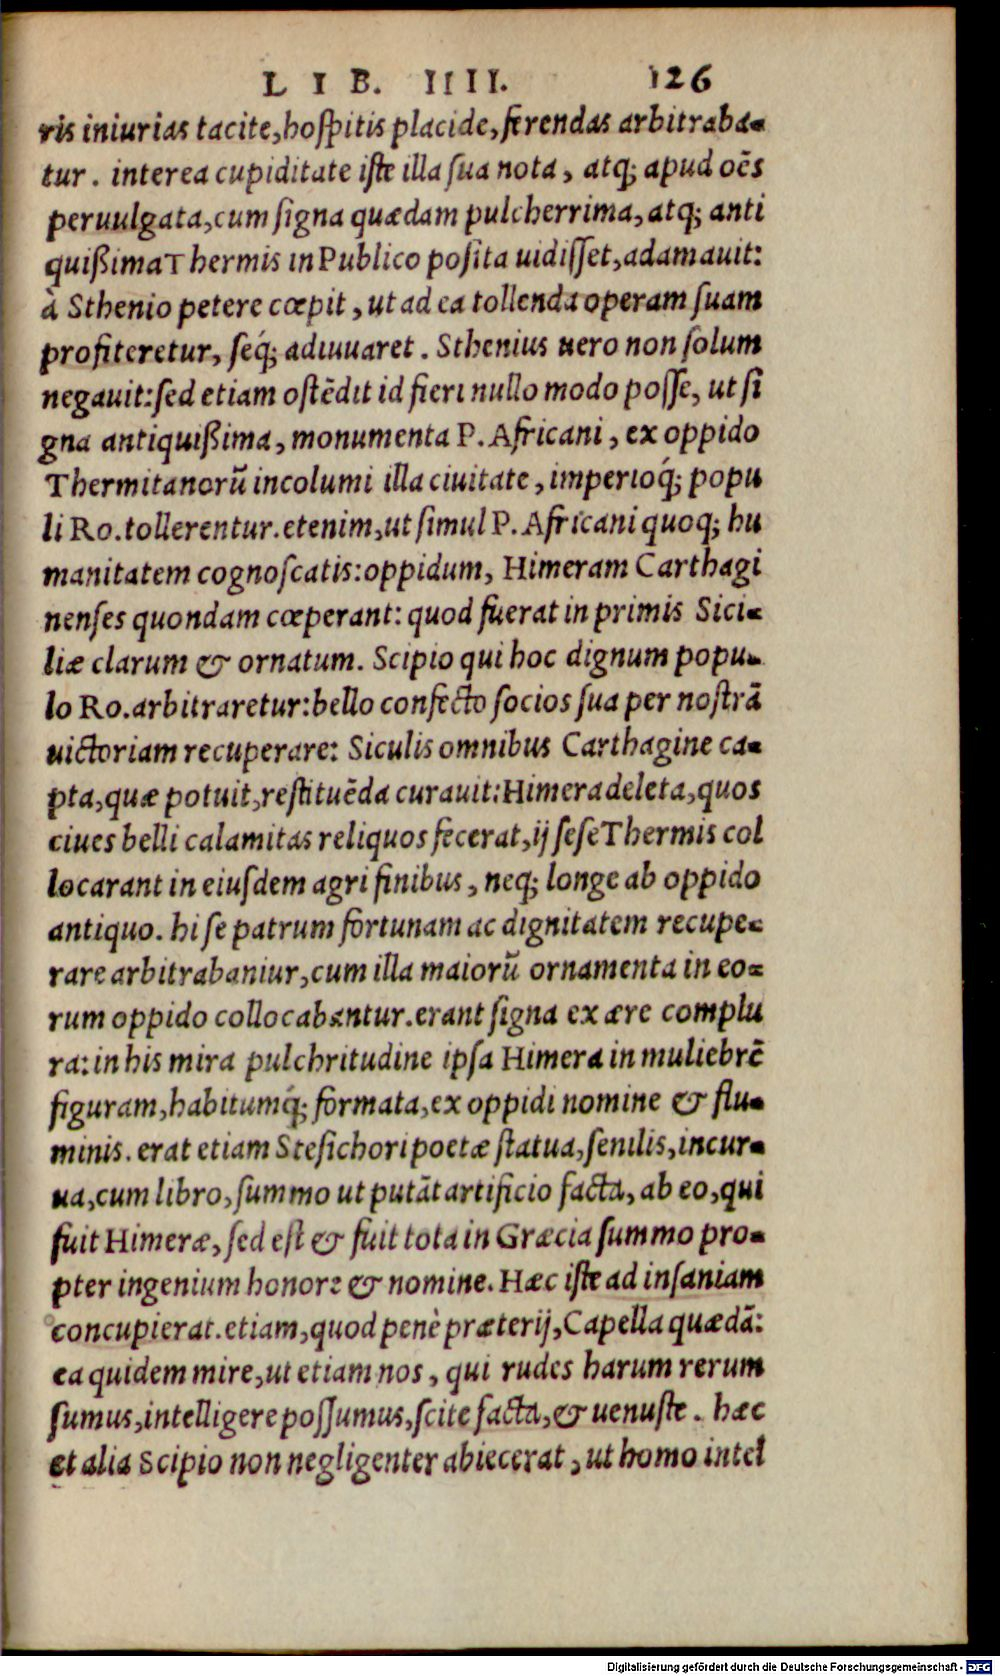 LIB. IIII. 126
ris iniurias tacite, hospitis placide, ferendas arbitraba-
tur. interea cupiditate iste illa sua nota, atq; apud oẽs
peruulgata, cum signa quædam pulcherrima, atq; anti
quißima Thermis in Publico posita uidisset, adamauit:
à Sthenio petere cœpit, ut ad ea tollenda operam suam
profiteretur, seq́; adiuuaret. Sthenius uero non solum
negauit: sed etiam ostẽdit id fieri nullo modo posse, ut si
gna antiquißima, monumenta P. Africani, ex oppido
Thermitanorũ incolumi illa ciuitate, imperioq́; popu
li Ro. tollerentur. etenim, ut simul P. Africani quoq; hu
manitatem cognoscatis: oppidum, Himeram Carthagi
nenses quondam cœperant: quod fuerat in primis Sici-
liæ clarum & ornatum. Scipio qui hoc dignum popu-
lo Ro. arbitraretur: bello confecto socios sua per nostrã
uictoriam recuperare: Siculis omnibus Carthagine ca-
pta, quæ potuit, restituẽda curauit: Himera deleta, quos
ciues belli calamitas reliquos fecerat, ij sese Thermis col
locarant in eiusdem agri finibus, neq; longe ab oppido
antiquo. hi se patrum fortunam ac dignitatem recupe-
rare arbitrabantur, cum illa maiorũ ornamenta in eo-
rum oppido collocabantur. erant signa ex ære complu
ra: in his mira pulchritudine ipsa Himera in muliebrẽ
figuram, habitumq́; formata, ex oppidi nomine & flu-
minis. erat etiam Stesichori poetæ statua, senilis, incur-
ua, cum libro, summo ut putãt artificio facta, ab eo, qui
fuit Himeræ, sed est & fuit tota in Græcia summo pro-
pter ingenium honore & nomine. Hæc iste ad insaniam
concupierat. etiam, quod penè præterij, Capella quædã:
ea quidem mire, ut etiam nos, qui rudes harum rerum
sumus, intelligere possumus, scite facta, & uenuste. hæc
et alia Scipio non negligenter abiecerat, ut homo intel
Digitalisierung gefördert durch die Deutsche Forschungsgemeinschaft - DFG